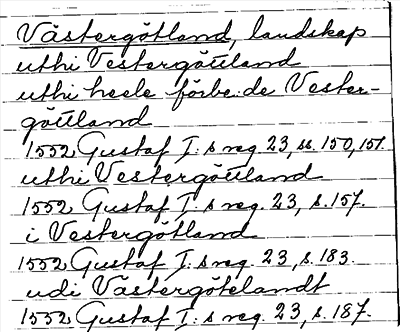 Västergötland, landskap
uthi Vestergöttland
uthi heele förbe:de Vester-
göttland
1552 Gustaf I:s reg 23, ss. 150, 151.
uthi Vestergöttland
1552 Gustaf I:s reg. 23, s. 157.
i Vestergötland
1552 Gustaf I:s reg. 23, s. 183.
udi Västergötelandt
1552 Gustaf I:s reg. 23, s. 187.